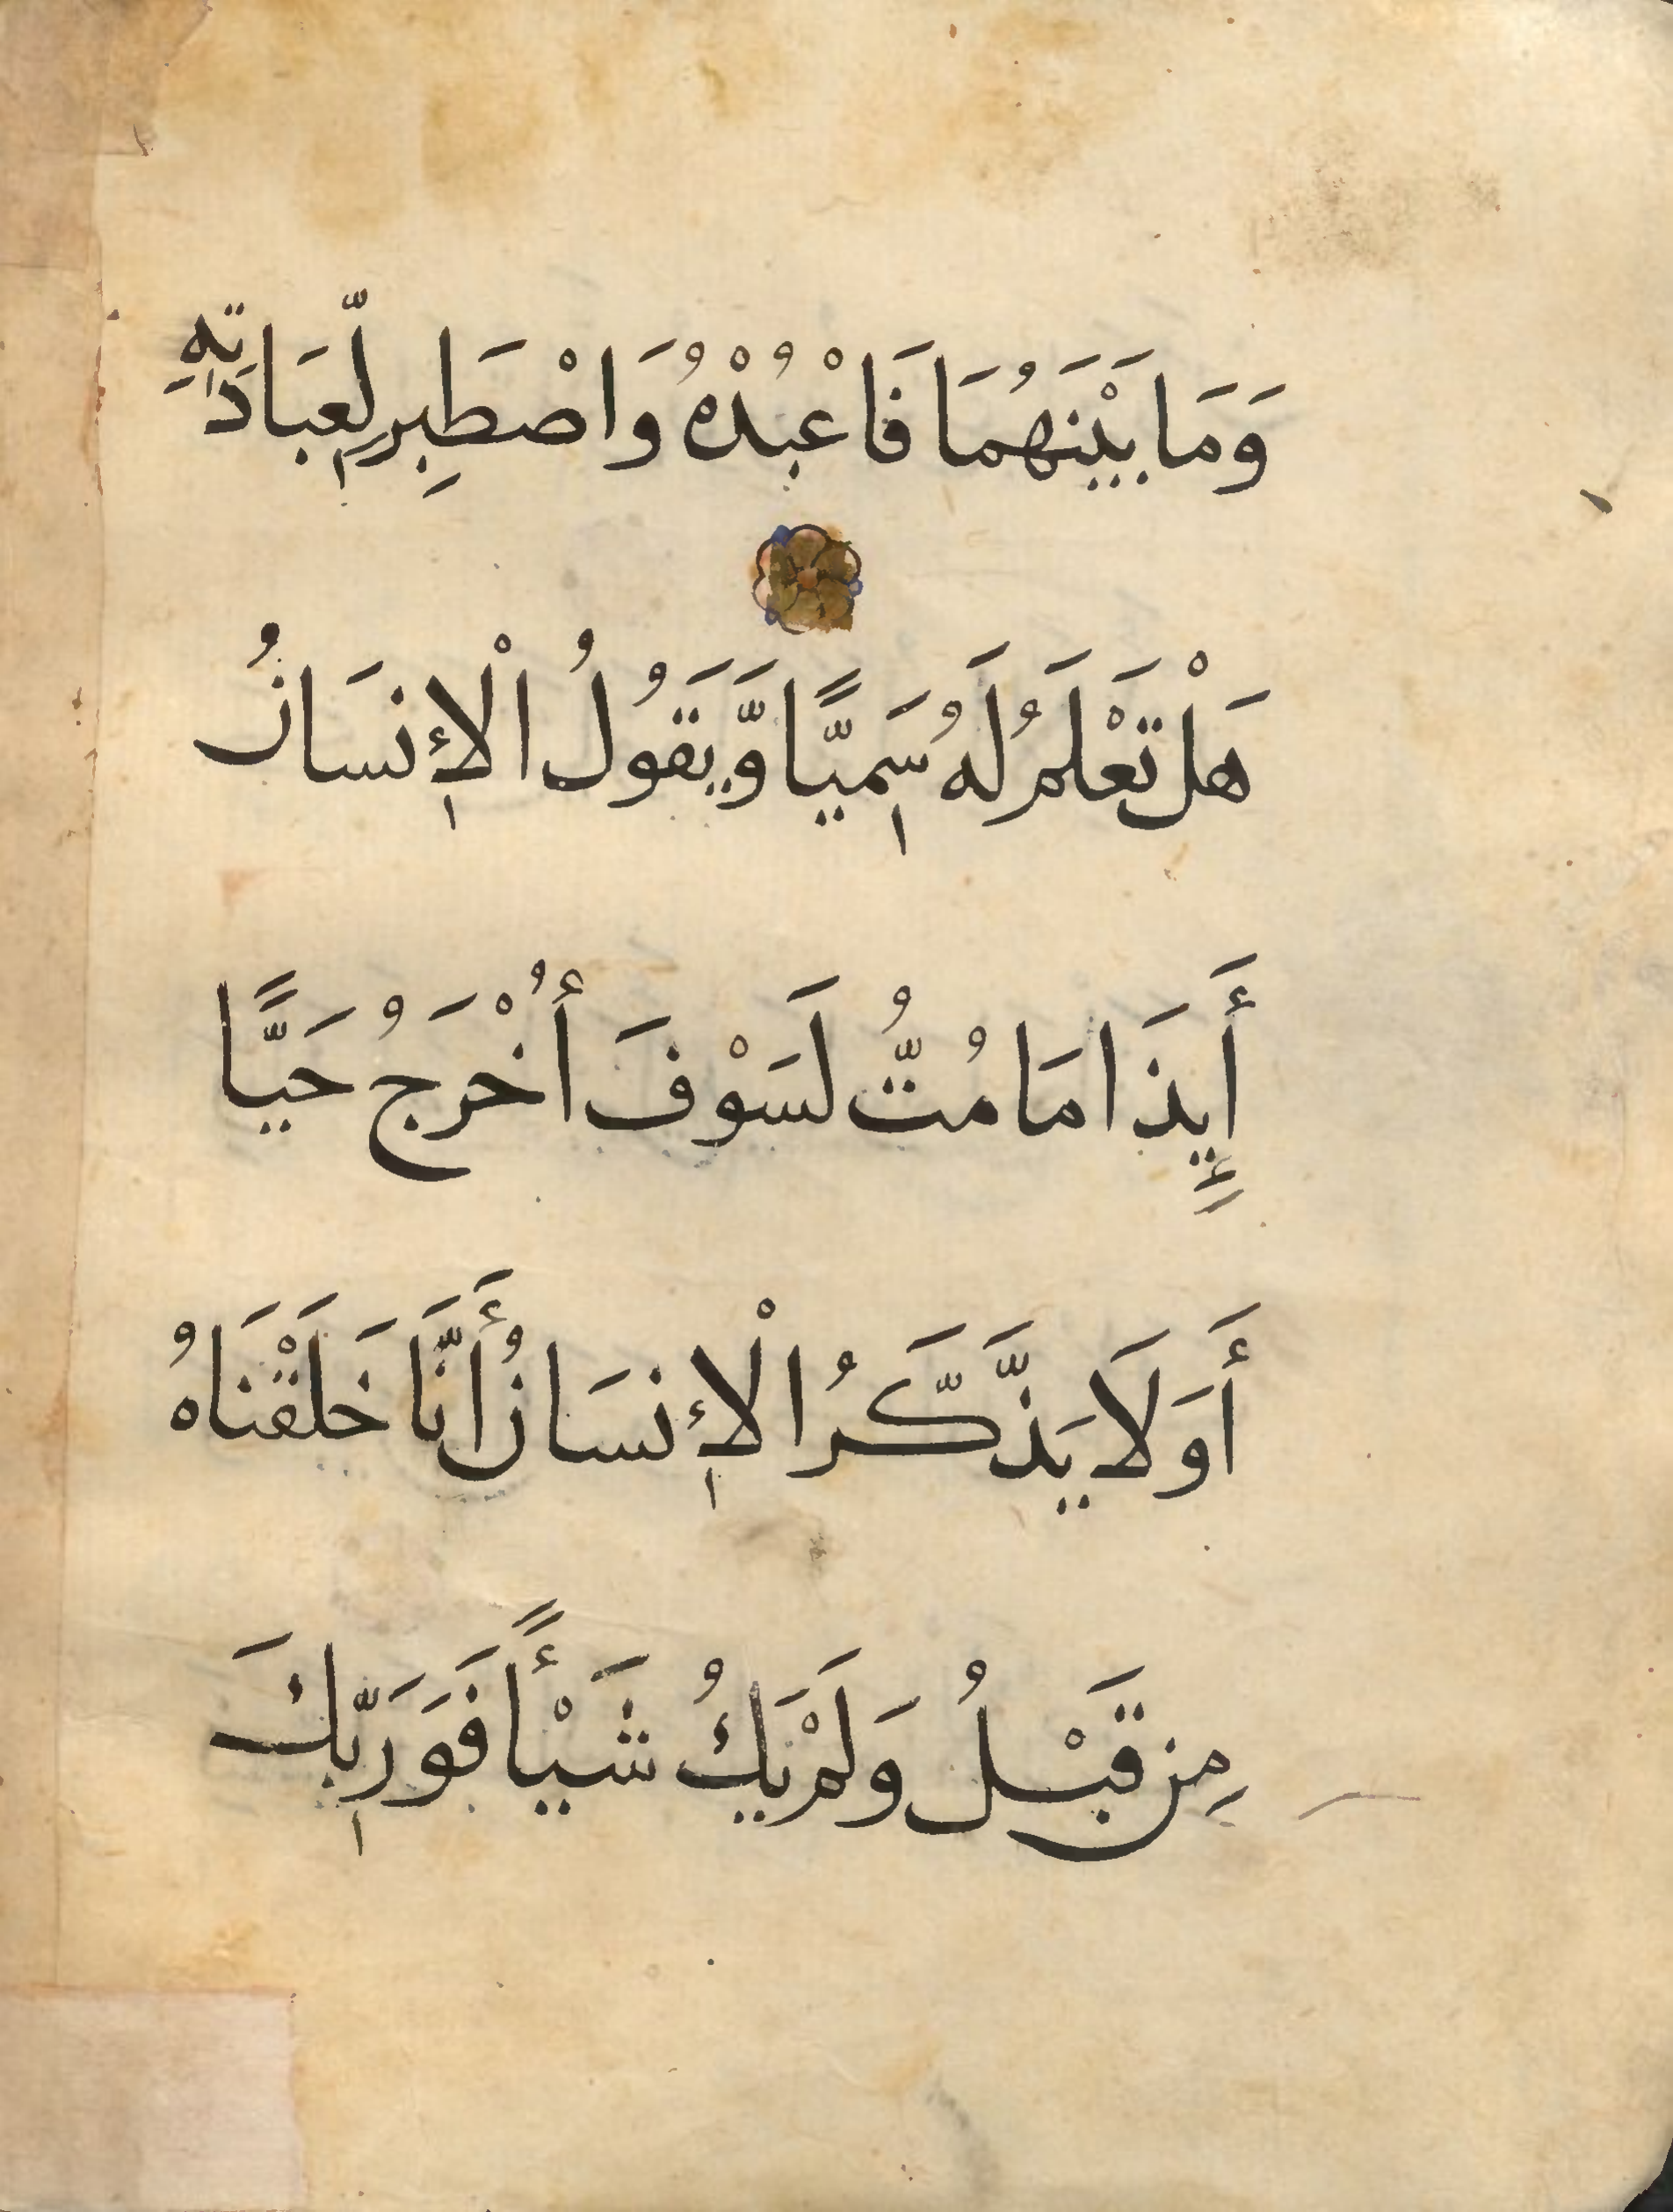 وَمَا بَيْنَهُمَا فَاعْبُدْهُ وَاصْطَبِر لِّعِبَادَتِهِ
هَلْ تَعْلَمُ لَهُ سَمِيًّا وَّيَقُولُ الْإِنسَانُ
أَإِيذَا مَا مُتُّ لَسَوْفَ أُخْرَجُ حَيًّا
أَوَلَا يَذَّكَّرُ الْإِنسَانُ أَنَّا خَلَقْنَاهُ
مِن قَبْلُ وَلَمْ يَكُ شَيْأً فَوَرَبِّكَ